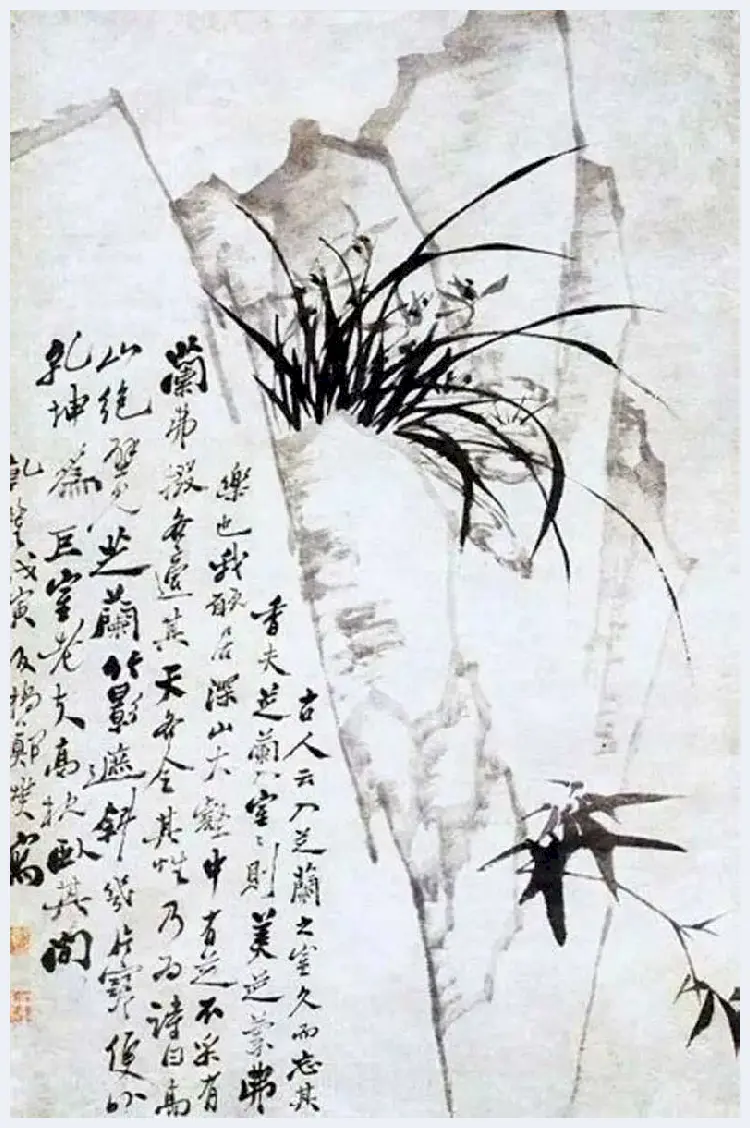 古人云入芝蘭之室久而忘其
香夫芝蘭入室室則美矣蘭弗
樂也我願居深山大壑中有芝不采有
蘭弗掇各適其天各全其性乃為詩曰高
山絕壁見芝蘭竹影遮斜幾片寒便以
乾坤為巨室老夫高枕臥其間
乾隆戊寅板橋鄭燮寫